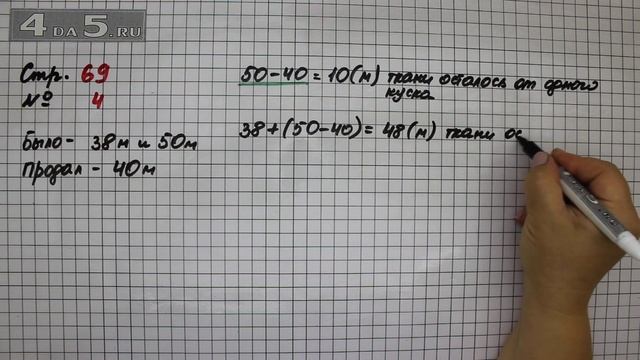 4DA5.RU
Стр. 69
№ 4
Было - 38м и 50м
Продал - 40м
50-40=10(м) ткани осталось от одного
куска
38+(50-40)=48(м) ткани ос